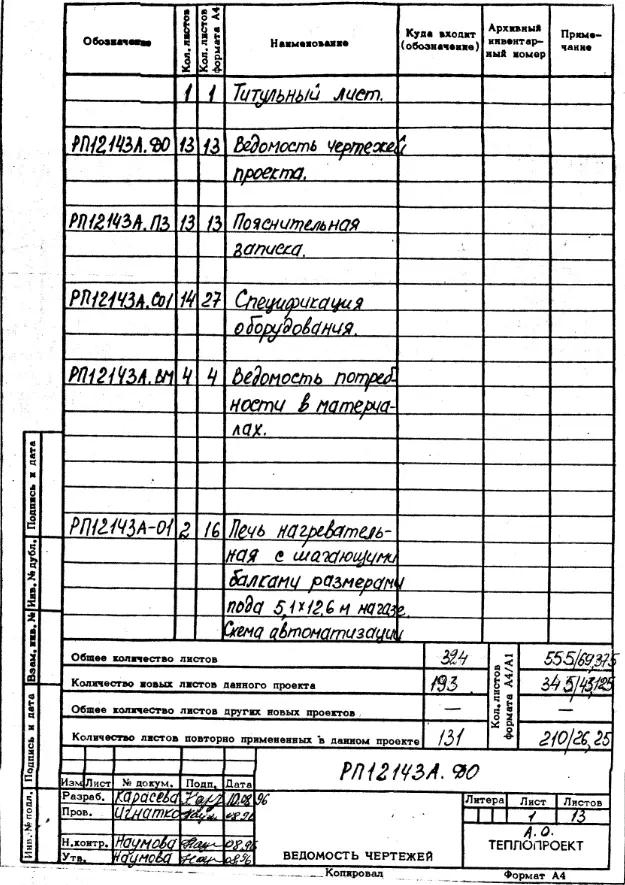 Обозначение Кол. листов Кол. листов формата А4 Наименование Куда входит (обозначение) Архивный инвентарный номер Примечание
1 1 Титульный лист.
РП12143А.ДО 13 13 Ведомость чертежей
проекта.
РП12143А.ПЗ 13 13 Пояснительная
записка.
РП12143А.СО1 14 27 Спецификация
оборудования.
РП12143А.ВМ 4 4 Ведомость потреб-
ности в материа-
лах.
РП12143А-01 2 16 Печь нагреватель-
ная с шагающими
балками размерами
пода 5,1×12,6 м на газе.
Схема автоматизации
Общее количество листов 324 Кол. листов формата А4/А1 555/69,375
Количество новых листов данного проекта 193 345/43,125
Общее количество листов других новых проектов — —
Количество листов повторно примененных в данном проекте 131 210/26,25
РП12143А.ДО
Изм Лист № докум. Подп. Дата
Разраб. Карасева 10.08.96
Пров. Игнатко 08.96
Н.контр. Наумова 08.96
Утв. Наумова 08.96
ВЕДОМОСТЬ ЧЕРТЕЖЕЙ
Литера Лист Листов
1 13
А.О.
ТЕПЛОПРОЕКТ
Копировал Формат А4
Инв. № подл. Подпись и дата Взам. инв. № Инв. № дубл. Подпись и дата